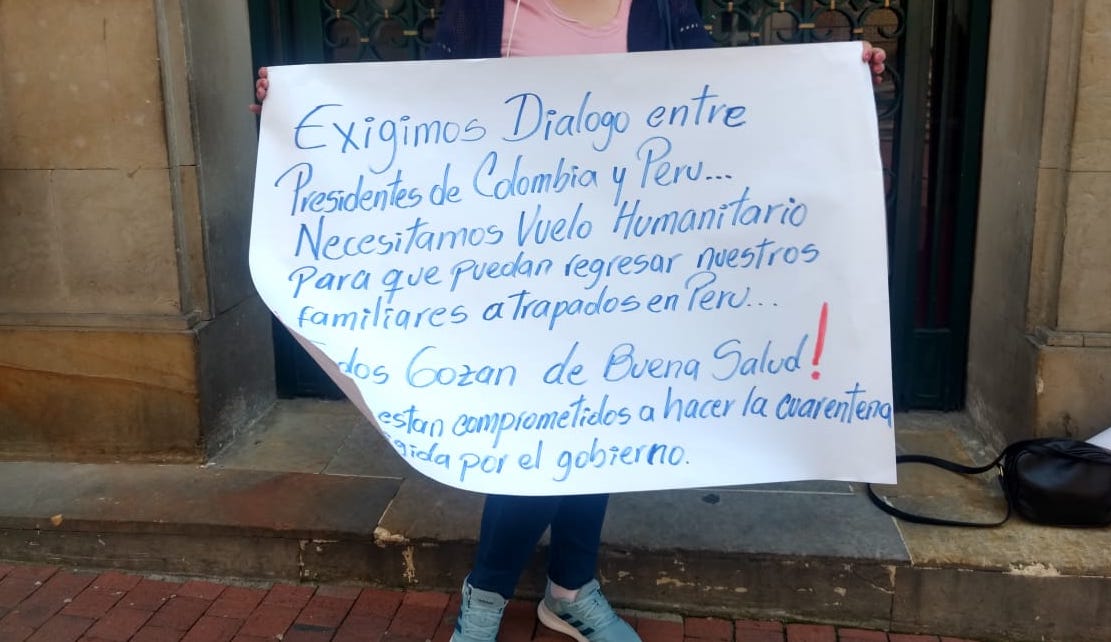 Exigimos Dialogo entre
Presidentes de Colombia y Peru...
Necesitamos Vuelo Humanitario
para que puedan regresar nuestros
familiares atrapados en Peru...
Gozan de Buena Salud!
estan comprometidos a hacer la cuarentena
por el gobierno.